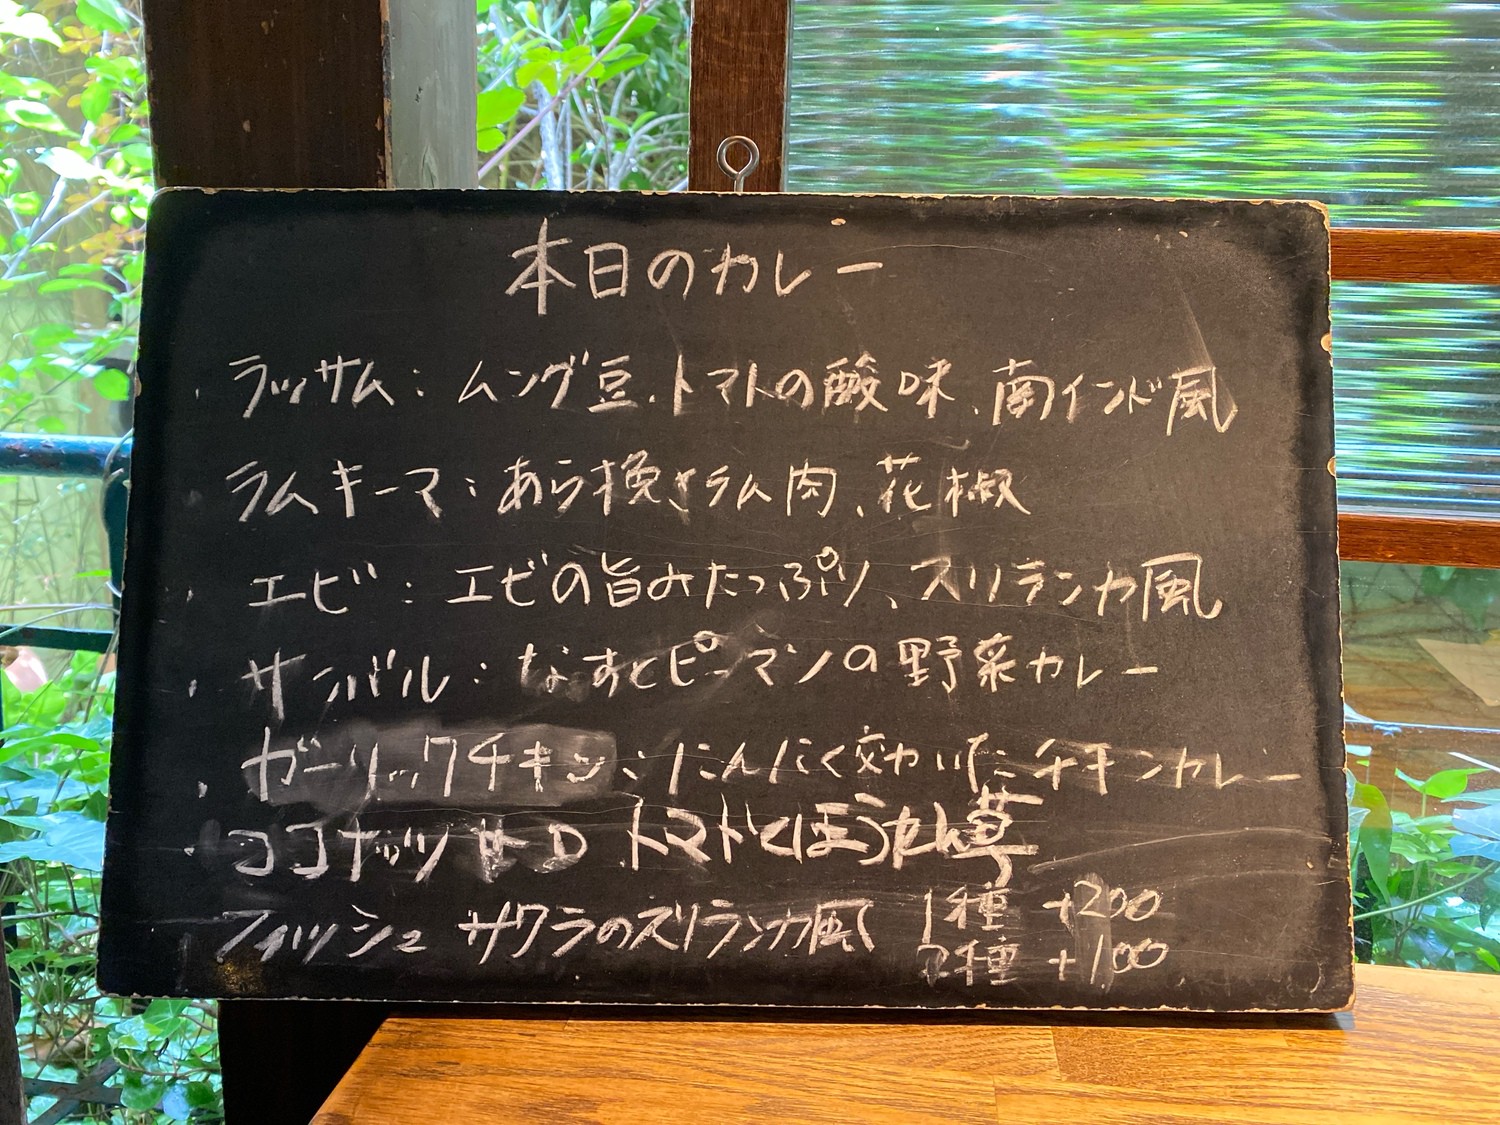 本日のカレー
・ラッサム：ムング豆、トマトの酸味、南インド風
・ラムキーマ：あら挽きラム肉、花椒
・エビ：エビの旨みたっぷり、スリランカ風
・サンバル：なすとピーマンの野菜カレー
・ガーリックチキン：にんにく効いたチキンカレー
・ココナッツ トマトとほうれん草
・フィッシュ サワラのスリランカ風 1種 +200
2種 +100